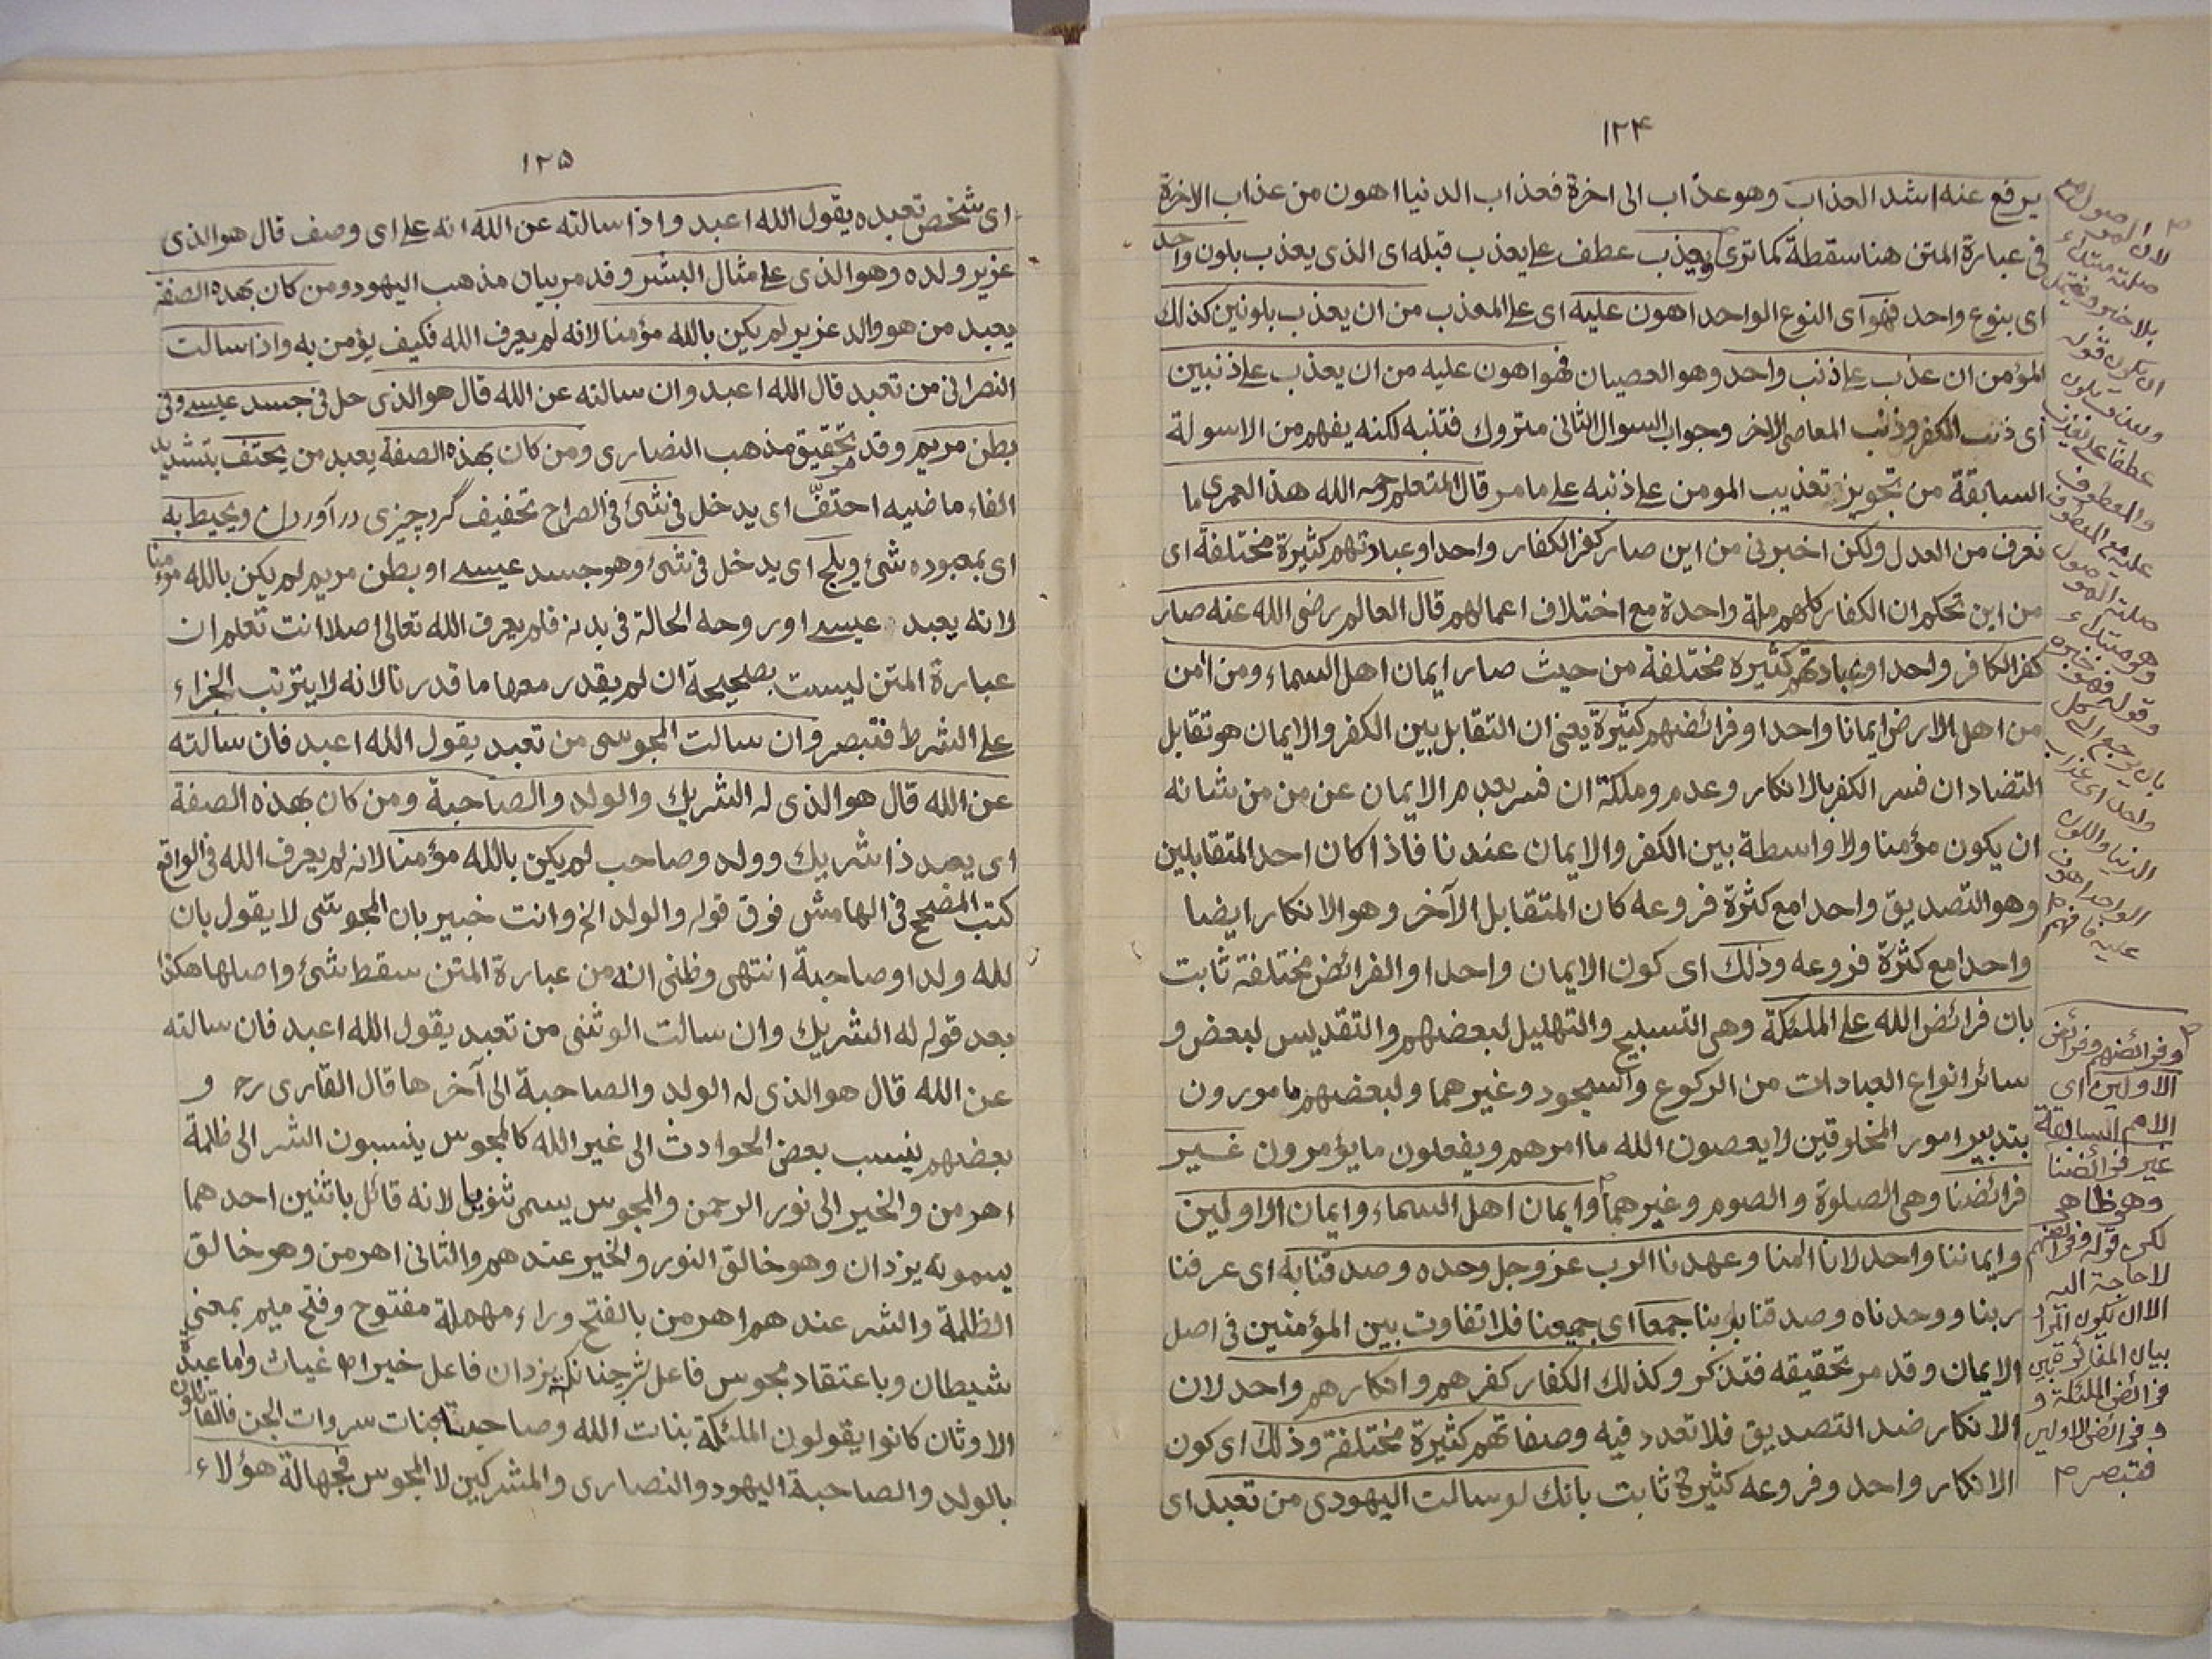 ١٢۴
يرفع عنه اشد العذاب وهو عذاب الى اخرة فعذاب الدنيا اهون من عذاب الاخرة
فى عبارة المتن هنا سقطة كما ترى ويعذب عطف على يعذب قبله اى الذى يعذب بلون واحد
اى بنوع واحد فهو اى النوع الواحد اهون عليه اى على المعذب من ان يعذب بلونين كذلك
المؤمن ان عذب على ذنب واحد وهو العصيان فهو اهون عليه من ان يعذب على ذنبين
اى ذنب الكفر وذنب المعاصى الاخر وجواب السوال الثانى متروك فتنبه لكنه يفهم من الاسولة
السابقة من تجويز تعذيب المومن على ذنبه على ما مر قال المتعلم رحمه الله هذا لعمرى ما
نعرف من العدل ولكن اخبرنى من اين صار كفر الكفار واحدا وعبادتهم كثيرة مختلفة اى
من اين تحكم ان الكفار كلهم ملة واحدة مع اختلاف اعمالهم قال العالم رضى الله عنه صار
كفر الكافر واحدا وعبادتهم كثيره مختلفة من حيث صار ايمان اهل السماء ومن امن
من اهل الارض ايمانا واحدا وفرائضهم كثيرة يعنى ان التقابل بين الكفر والايمان هو تقابل
التضاد ان فسر الكفر بالانكار وعدم وملكة ان فسر بعدم الايمان عن من من شانه
ان يكون مؤمنا ولا واسطة بين الكفر والايمان عندنا فاذا كان احد المتقابلين
وهو التصديق واحدا مع كثرة فروعه كان المتقابل الآخر وهو الانكار ايضا
واحدا مع كثرة فروعه وذلك اى كون الايمان واحدا والفرائض مختلفة ثابت
بان فرائض الله على الملئكة وهى التسبيح والتهليل لبعضهم والتقديس لبعض و
سائر انواع العبادات من الركوع والسجود وغيرهما ولبعضهم مامورون
بتدبير امور المخلوقين لا يعصون الله ما امرهم ويفعلون ما يؤمرون غير
فرائضنا وهى الصلوة والصوم وغيرهما وايمان اهل السماء وايمان الاولين
وايماننا واحد لانا امنا وعهدنا الرب عزوجل وحده وصدقنا به اى عرفنا
ربنا ووحدناه وصدقنا بربنا جمعا اى جميعنا فلا تفاوت بين المؤمنين فى اصل
الايمان وقد مر تحقيقه فتذكر وكذلك الكفار كفرهم وانكارهم واحد لان
الانكار ضد التصديق فلا تعدد فيه وصفاتهم كثيرة مختلفة وذلك اى كون
الانكار واحد وفروعه كثيرة ثابت بانك لو سالت اليهودى من تعبد اى
لان الموصول مع
صلته مبتداء
بلا خبر ويحتمل
ان يكون قوله
عطفا على يعذب
والمعطوف
عليه مع المعطوف
صلة الموصول
وهو مبتداء
وقوله فهو خبره
واحد اى عذاب
الدنيا واللون
الواحد اهون
عليه فافهم
وفرائضهم وفرائض
الاولين اى
الامم السابقة
غير فرائضنا
وهى ظاهر
لكن قوله وفرائضهم
لا حاجة اليه
الا ان يكون المراد
بيان المفارقة بين
فرائض الملئكة و
وفرائض الاولين
فتبصر
١٢۵
اى شخص تعبده يقول الله اعبد واذا سالته عن الله انه على اى وصف قال هو الذى
عزير ولده وهو الذى على مثال البشر وقد مر بيان مذهب اليهود ومن كان بهذه الصفة
يعبد من هو والد عزير لم يكن بالله مؤمنا لانه لم يعرف الله فكيف يؤمن به واذا سالت
النصرانى من تعبد قال الله اعبد وان سالته عن الله قال هو الذى حل فى جسد عيسى وفى
بطن مريم وقد مر تحقيق مذهب النصارى ومن كان بهذه الصفة يعبد من يحتف بتشديد
الفاء ماضيه احتفّ اى يدخل فى شئ فى الصراح تخفيف گرد چيزى در آوردن ويحيط به
اى بمعبوده شئ ويلج اى يدخل فى شئ وهو جسد عيسى او بطن مريم لم يكن بالله مؤمنا
لانه يعبد عيسى او روحه الحالة فى بدنه فلم يعرف الله تعالى اصلا انت تعلم ان
عبارة المتن ليست بصحيحة ان لم يقدر معها ما قدرنا لانه لا يترتب الجزاء
على الشرط فتبصر وان سالت المجوسى من تعبد يقول الله اعبد فان سالته
عن الله قال هو الذى له الشريك والولد والصاحبة ومن كان بهذه الصفة
اى يعبد ذا شريك وولد وصاحب لم يكن بالله مؤمنا لانه لم يعرف الله فى الواقع
كتب المصحح فى الهامش فوق قوله والولد الخ وانت خبير بان المجوسى لا يقول بان
لله ولدا وصاحبة انتهى وظنى انه من عبارة المتن سقط شئ واصلها هكذا
بعد قوله له الشريك وان سالت الوثنى من تعبد يقول الله اعبد فان سالته
عن الله قال هو الذى له الولد والصاحبة الى آخرها قال القارى رح و
بعضهم ينسب بعض الحوادث الى غير الله كالمجوس ينسبون الشر الى ظلمة
اهرمن والخير الى نور الرحمن والمجوس يسمى ثنويا لانه قائل باثنين احدهما
يسمونه يزدان وهو خالق النور والخير عندهم والثانى اهرمن وهو خالق
الظلمة والشر عندهم اهرمن بالفتح وراء مهملة مفتوح وفتح ميم بمعنى
شيطان وباعتقاد مجوس فاعل شر چنانكه يزدان فاعل خير اه غياث واما عبدة
الاوثان كانوا يقولون الملئكة بنات الله وصاحبته بنات سروات الجن فالقائلون
بالولد والصاحبة اليهود والنصارى والمشركين لا المجوس فجهالة هؤلاء